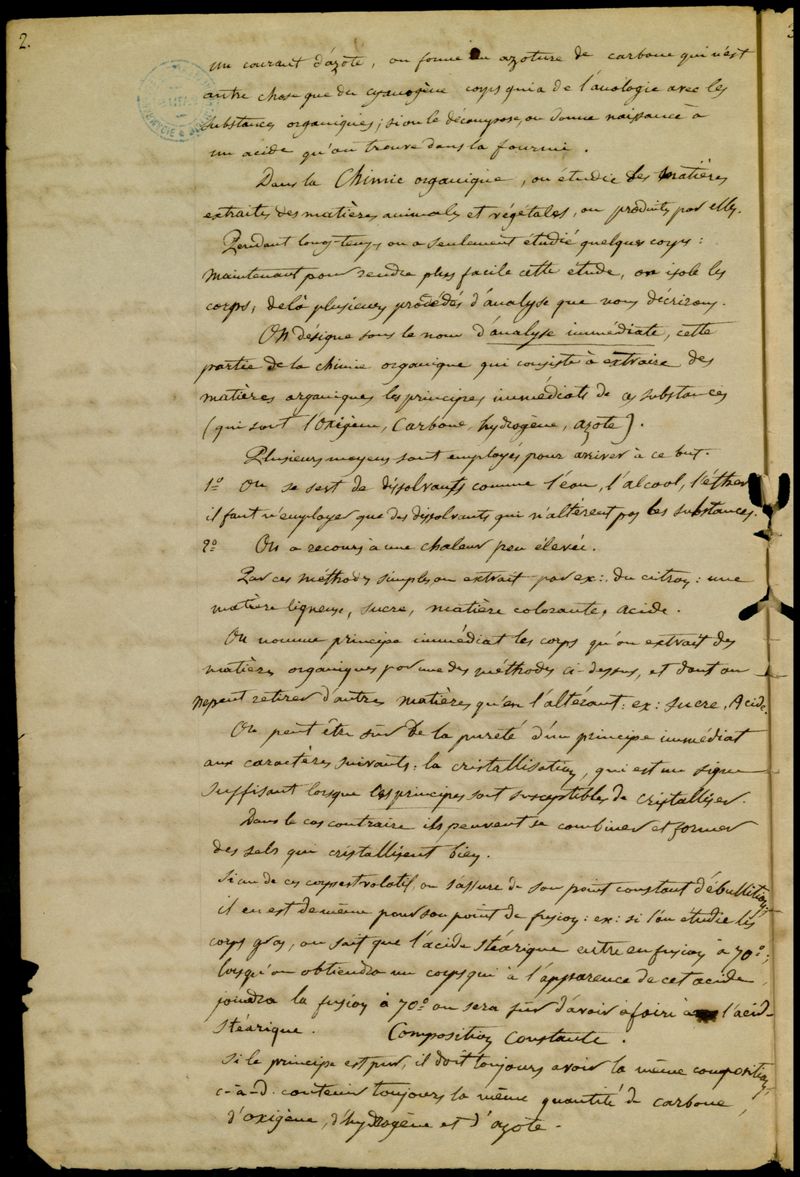 2.
un courant d'azote, on forme un azoture de carbone qui n'est
autre chose que du cyanogène corps qui a de l'anologie avec les
substances organiques; si on le décompose, on donne naissance à
un acide qu'on trouve dans la fourmi.
Dans la Chimie organique, on étudie des matières
extraites des matières animales et végétales, ou produits par elles.
Pendant long-temps on a seulement étudié quelques corps:
maintenant pour rendre plus facile cette étude, on isole les
corps, de là plusieurs procédés d'analyse que nous décrirons.
On désigne sous le nom d'analyse immédiate, cette
partie de la chimie organique qui consiste à extraire des
matières organiques les principes immédiats de ces substances
(qui sont l'Oxigène, Carbone, hydrogène, azote).
Plusieurs moyens sont employés pour arriver à ce but.
1º On se sert de dissolvants comme l'eau, l'alcool, l'éther
il faut n'employer que des dissolvants qui n'altèrent pas les substances.
2º On a recours à une chaleur peu élevée.
Par ces méthodes simples on extrait par ex: du citron: une
matière ligneuse, sucre, matière colorante, acide.
On nomme principe immédiat les corps qu'on extrait des
matières organiques par une des méthodes ci-dessus, et dont on
ne peut retirer d'autres matières qu'en l'altérant: ex: sucre, Acide.
On peut être sûr de la pureté d'un principe immédiat
aux caractères suivants: la cristallisation, qui est un signe
suffisant lorsque les principes sont susceptibles de cristalliser.
Dans le cas contraire ils peuvent se combiner et former
des sels qui cristallisent bien.
Si un de ces corps est volatil, on s'assure de son point constant d'ébullition,
il en est de même pour son point de fusion: ex: si l'on étudie les
corps gras, on sait que l'acide stéarique entre en fusion à 70º;
lorsqu'on obtiendra un corps qui à l'apparence de cet acide
joindra la fusion à 70º on sera sûr d'avoir afaire à l'acide
stéarique. Composition Constante.
Si le principe est pur, il doit toujours avoir la même composition,
c-à-d. contenir toujours la même quantité de carbone,
d'oxigène, d'hydrogène et d'azote.